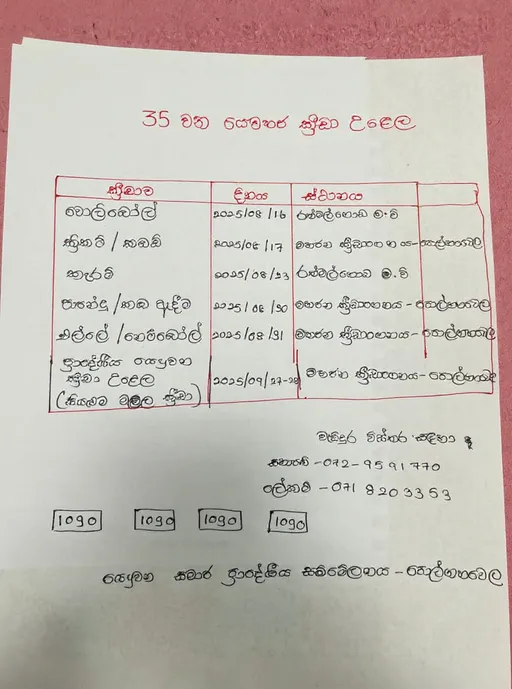 35 වන යෞවනජ ක්‍රීඩා උළෙල
ක්‍රීඩාව දිනය ස්ථානය
වොලිබෝල් 2025/08/16 රාජ්මල්ගොඩ ම.වි
ක්‍රිකට් / කබඩි 2025/08/17 මහජන ක්‍රීඩාංගනය - පොල්ගහවෙල
කැරම් 2025/08/23 රාජ්මල්ගොඩ ම.වි
පාපන්දු / කඹ ඇදීම 2025/08/30 මහජන ක්‍රීඩාංගනය - පොල්ගහවෙල
එල්ලේ / නෙට්බෝල් 2025/08/31 මහජන ක්‍රීඩාංගනය - පොල්ගහවෙල
ප්‍රාදේශීය යෞවන
ක්‍රීඩා උළෙල 2025/09/27-28 මහජන ක්‍රීඩාංගනය - පොල්ගහවෙල
(සියළුම මලල ක්‍රීඩා)
වැඩිදුර විස්තර සඳහා
සභාපති - 072-9591770
ලේකම් - 071 8203353
1090 1090 1090 1090
යෞවන සමාජ ප්‍රාදේශීය සම්මේලනය - පොල්ගහවෙල